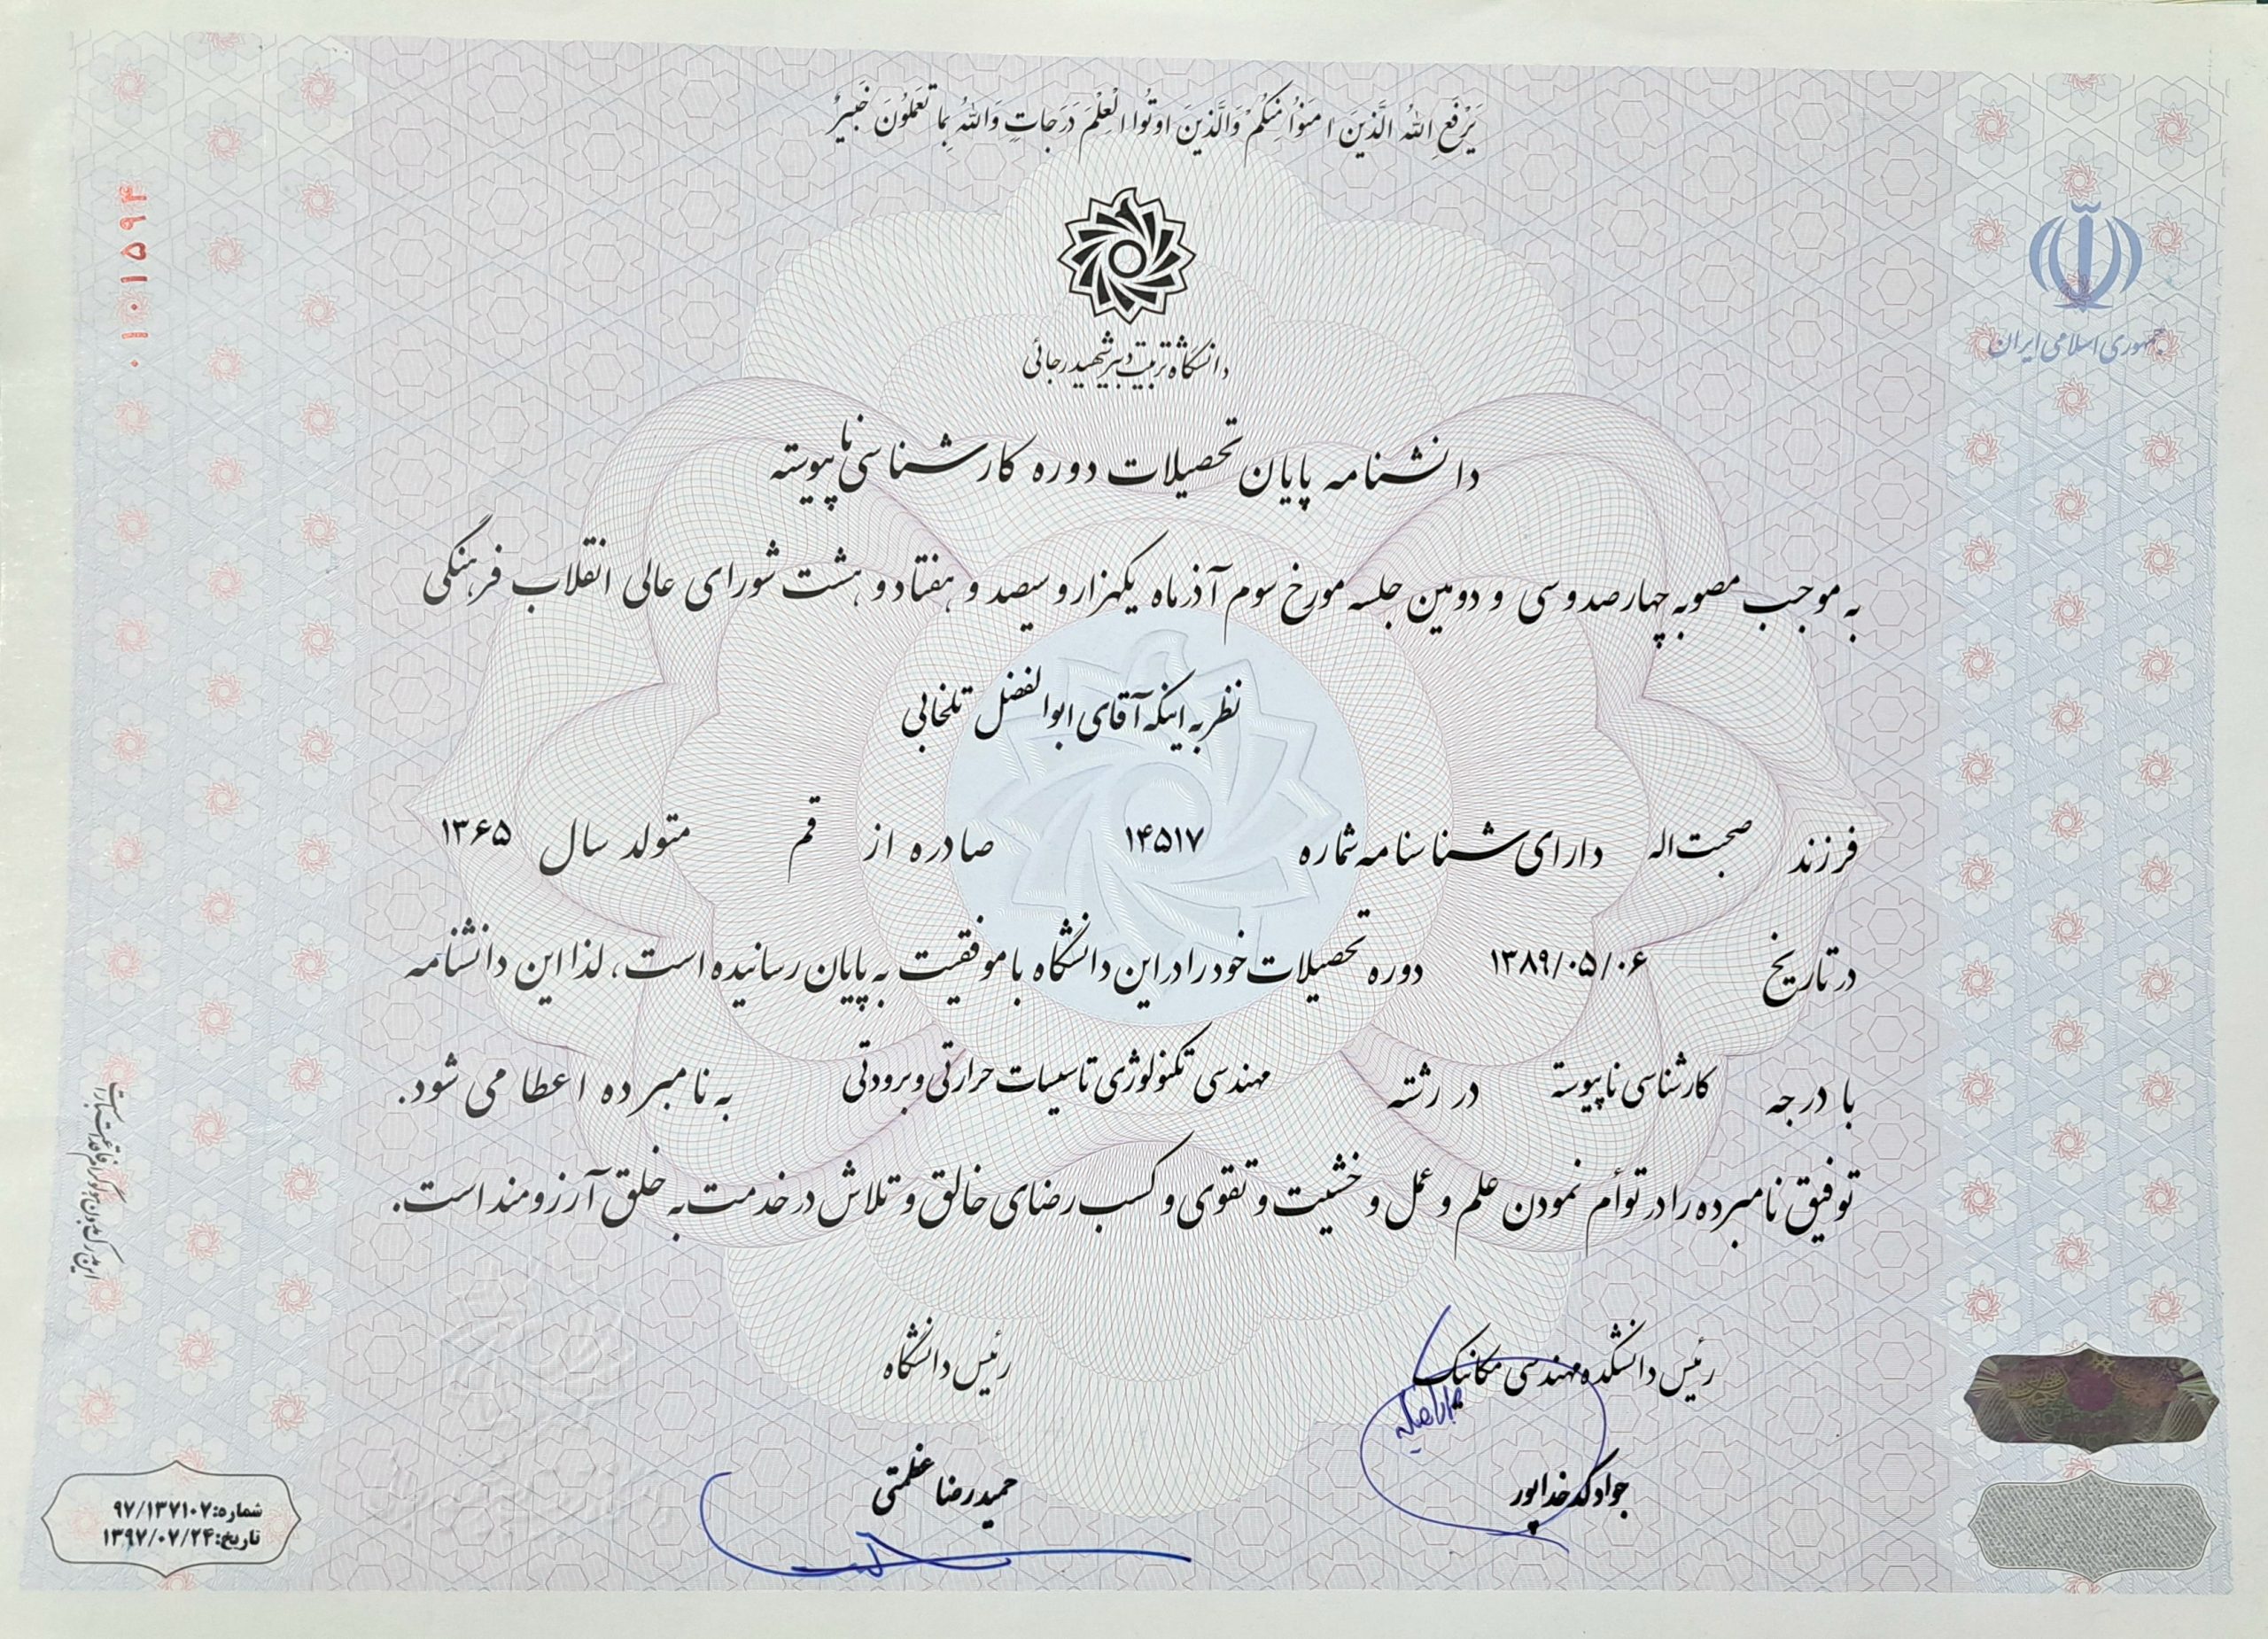 یَرْفَعِ اللهُ الَّذینَ امَنوُا مِنکُمْ وَالَّذینَ اوتُوا الْعِلْمَ دَرَجاتٍ وَاللهُ بِما تَعمَلوُنَ خَبیرٌ
جمهوری اسلامی ایران
۰۱۰۱۵۹۴
دانشگاه تربیت دبیر شهید رجائی
دانشنامه پایان تحصیلات دوره کارشناسی ناپیوسته
به موجب مصوبه چهارصد و سی و دومین جلسه مورخ سوم آذرماه یکهزار و سیصد و هفتاد و هشت شورای عالی انقلاب فرهنگی
نظر به اینکه آقای ابوالفضل تلخابی
فرزند صحبت اله دارای شناسنامه شماره ۱۴۵۱۷ صادره از قم متولد سال ۱۳۶۵
در تاریخ ۱۳۸۹/۰۵/۰۶ دوره تحصیلات خود را در این دانشگاه با موفقیت به پایان رسانیده است، لذا این دانشنامه
با درجه کارشناسی ناپیوسته در رشته مهندسی تکنولوژی تاسیسات حرارتی و برودتی به نامبرده اعطا می شود.
توفیق نامبرده را در توأم نمودن علم و عمل و خشیت و تقوی و کسب رضای خالق و تلاش در خدمت به خلق آرزومند است.
رئیس دانشکده مهندسی مکانیک
جواد کدخداپور
رئیس دانشگاه
حمیدرضا عظمتی
این مدرک بدون هولوگرام فاقد اعتبار است
شماره: ۹۷/۱۳۷۱۰۷
تاریخ: ۱۳۹۷/۰۷/۲۴